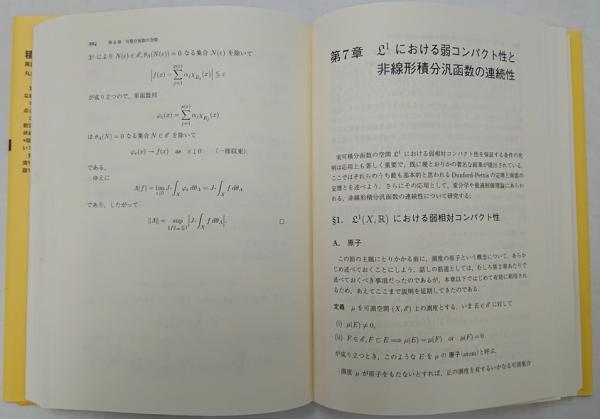 394　第6章　可積分函数の空間
により N(ε)∈ℰ, θ_Λ(N(ε))=0 なる集合 N(ε) を除いて
|f(x)−∑_{j=1}^{p(ε)} α_jχ_{E_j}(x)| ≦ ε
が成り立つので，単函数列
φ_ε(x)=∑_{j=1}^{p(ε)} α_jχ_{E_j}(x)
は θ_Λ(N)=0 なる集合 N∈ℰ を除いて
φ_ε(x)→f(x)　as　ε↓0　（一様収束）
である．
ゆえに
Λ(f)=lim_{ε↓0} J-∫_X φ_ε dθ_Λ=J-∫_X f dθ_Λ
であり，したがって
‖Λ‖= sup_{‖f‖_∞≦1} |J-∫_X f dθ_Λ|.　□
第7章　𝔏¹ における弱コンパクト性と
非線形積分汎函数の連続性
実可積分函数の空間 𝔏¹ における弱相対コンパクト性を保証する条件の究
明は応用上も著しく重要で，既に幾とおりかの著名な結果が提出されている．
ここではそれらのうち最も基本的と思われる Dunford-Pettis の定理と
定理とを述べよう．さらにその応用として，変分学や最適制御理論にあらわ
れる，非線形積分汎函数の連続性について研究する．
§1. 𝔏¹(X,ℝ) における弱相対コンパクト性
A. 原子
この節の主題にとりかかる前に，測度の原子という概念について，あらか
じめ述べておくことにしよう．話しの筋道としては，むしろ第2章あたりで
述べておくべき事項だったのであるが，本章以下ではじめて有効に利用され
るため，あえてここまで説明を延期してきたのである．
定義　μ を可測空間 (X,ℰ) 上の測度とする．いま E∈ℰ に対して
(i) μ(E)≠0,
(ii) F∈ℰ, F⊂E ⟹ μ(E)=μ(F)　or　μ(F)=0
が成り立つとき，このような E を μ の 原子(atom)と呼ぶ．
測度 μ が原子をもたないとすれば，正の測度を有するいかなる可測集合